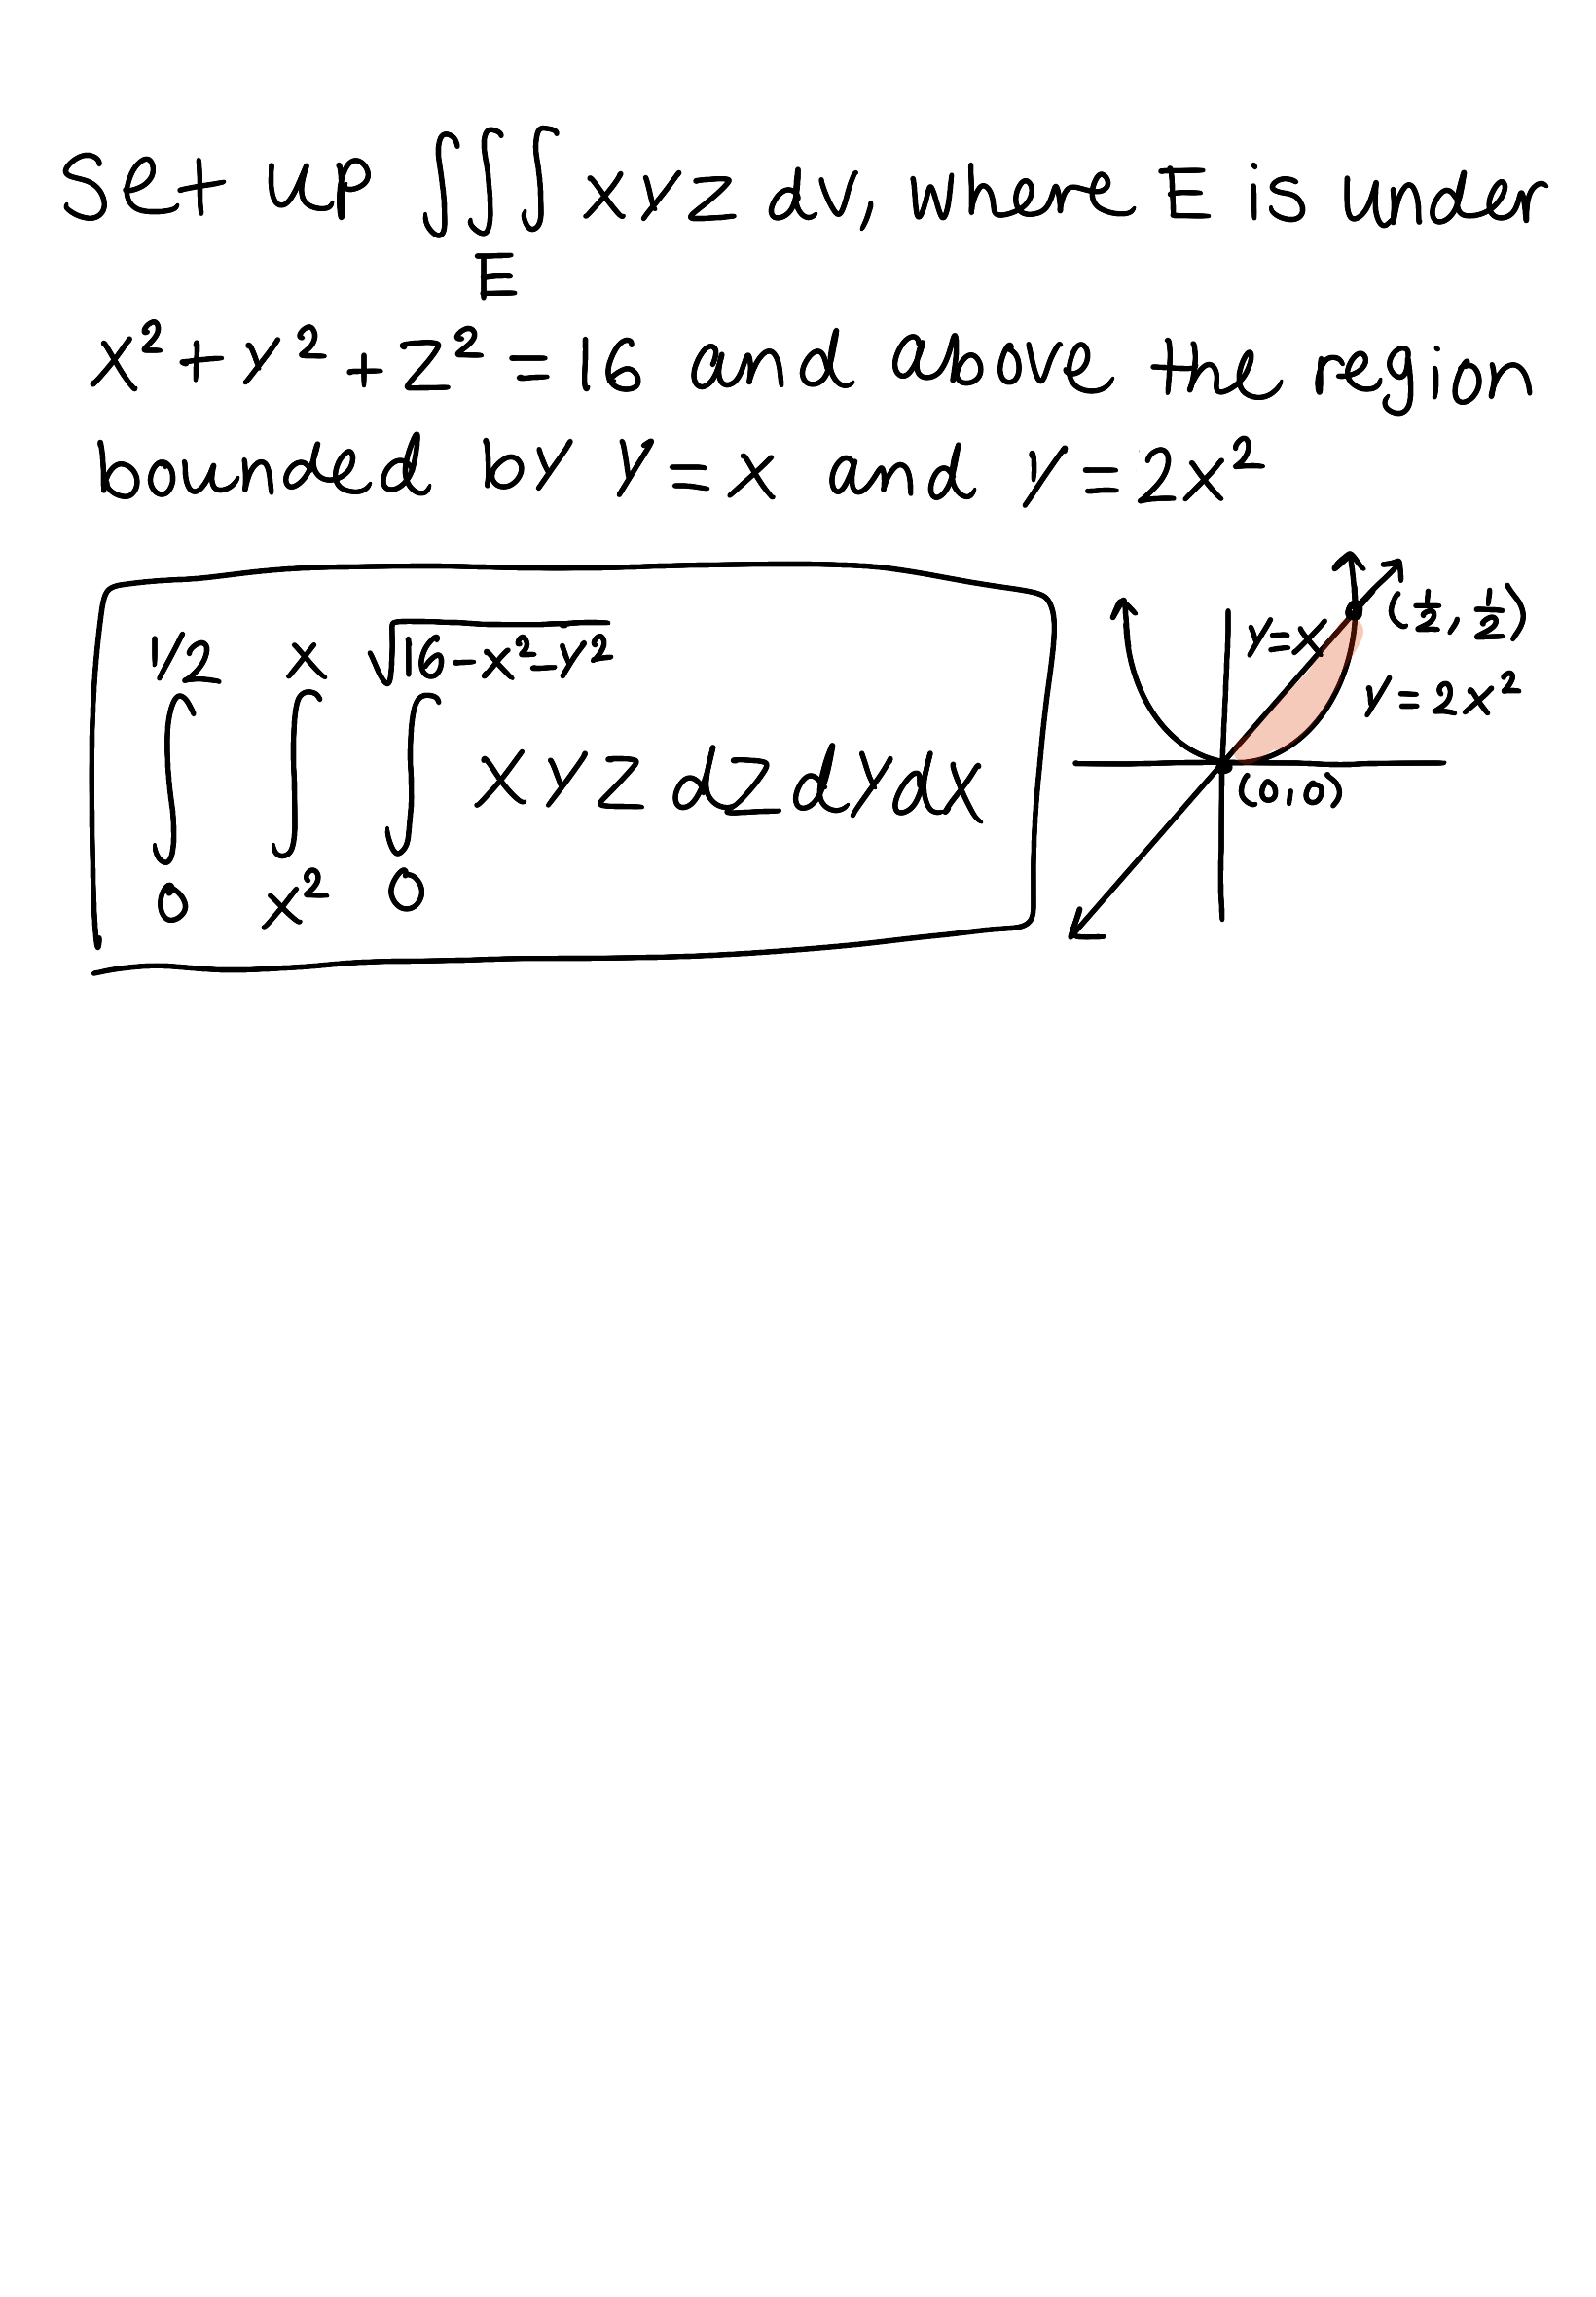 Set up ∭ xyz dv, where E is under
E
x² + y² + z² = 16 and above the region
bounded by y = x and y = 2x²
1/2 x √16-x²-y²
∫ ∫ ∫ xyz dz dy dx
0 x² 0
y=x (½, ½)
y = 2x²
(0,0)